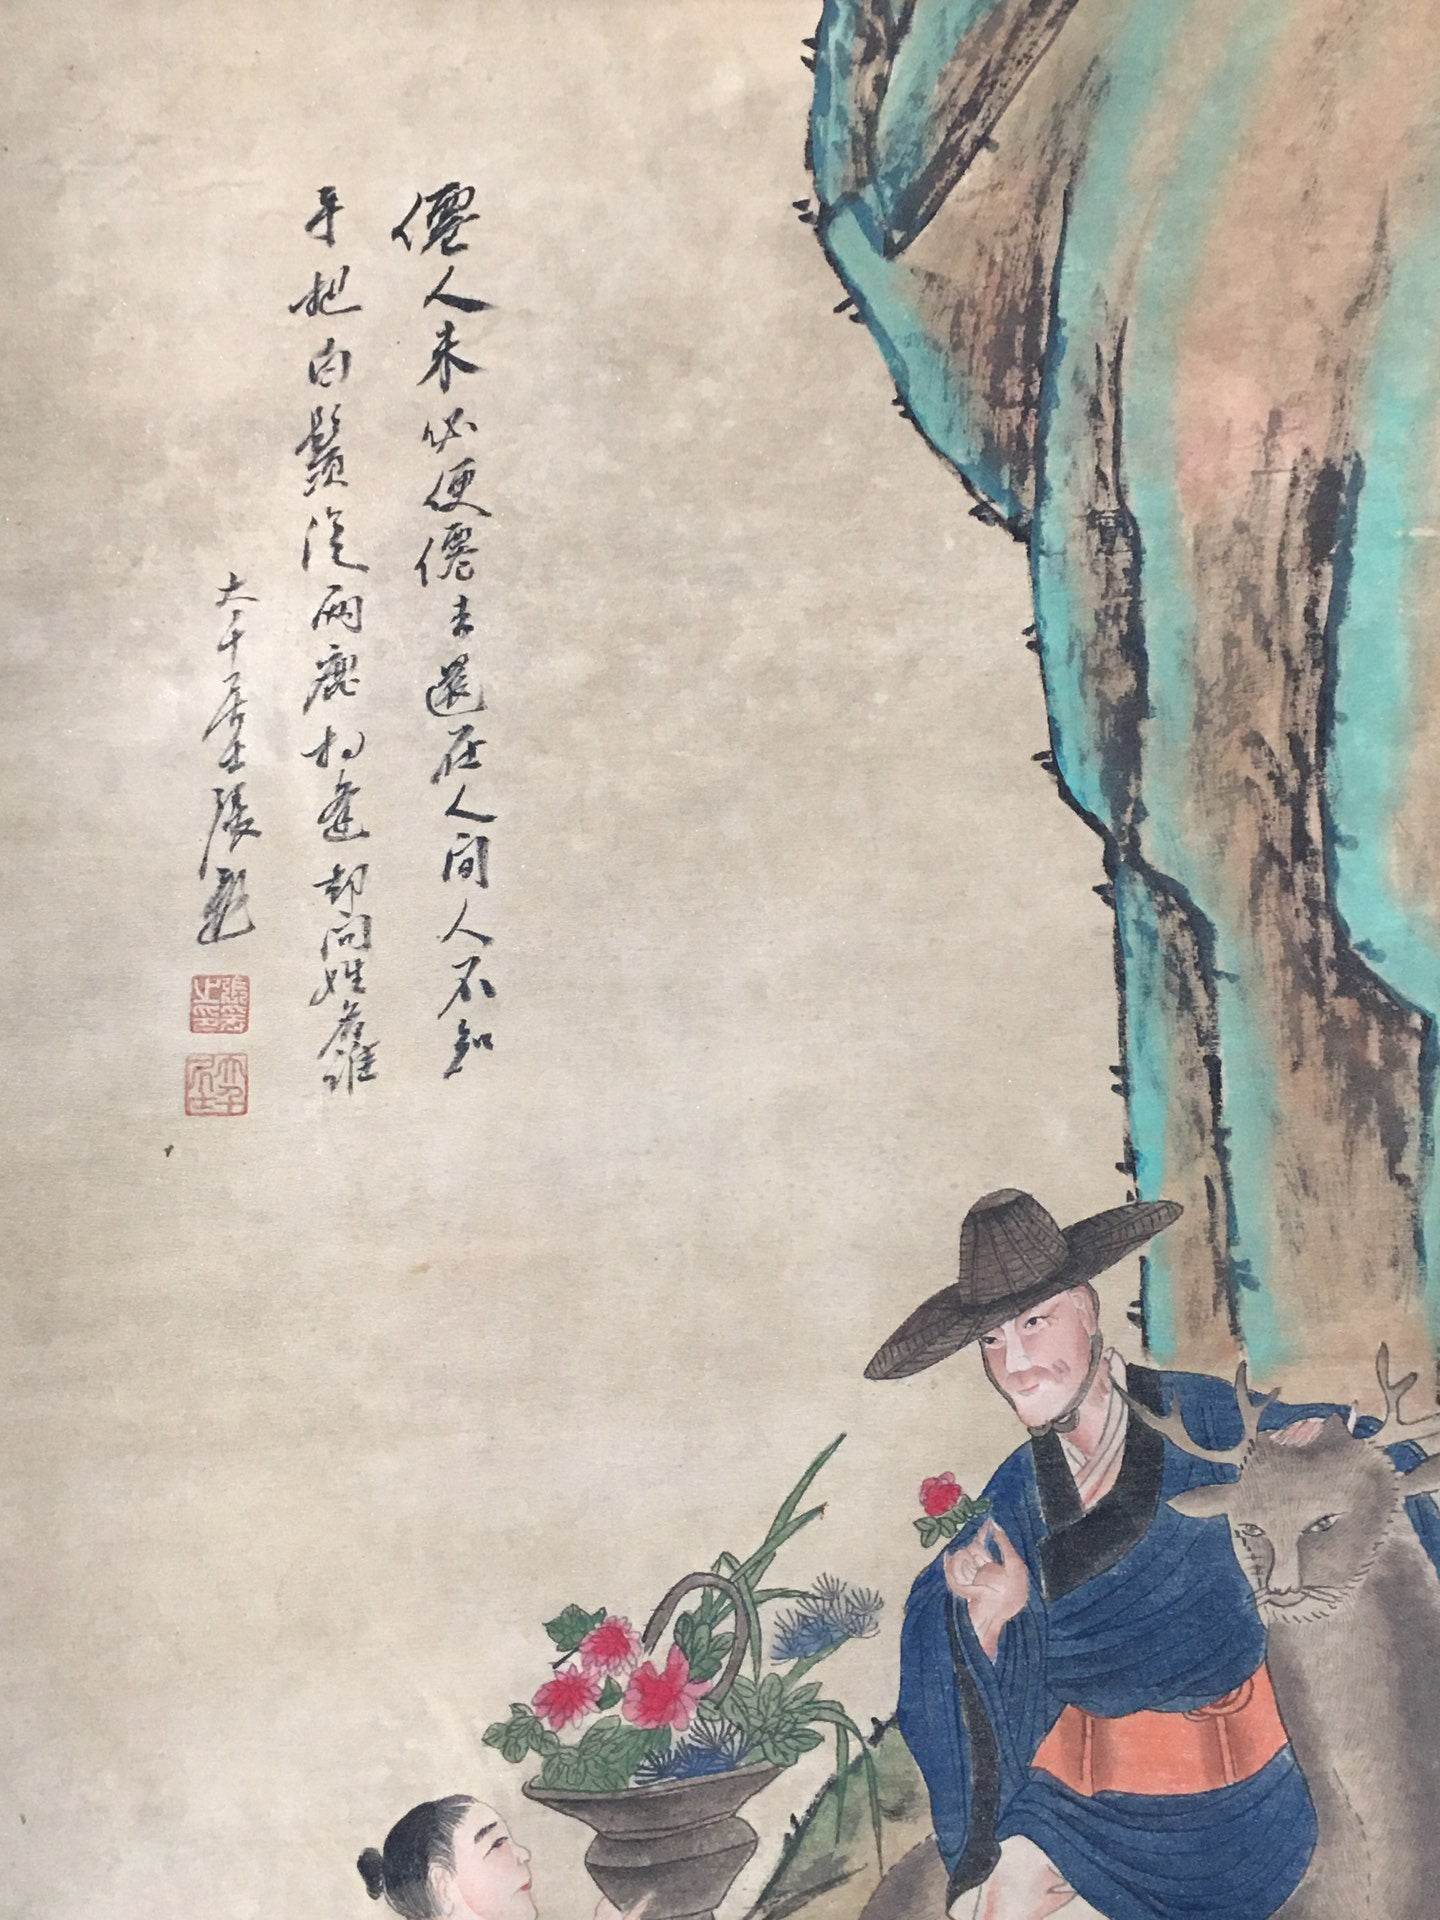 僊人未必便僊去還在人間人不知
手把白鬚從兩鹿相逢却問姓名誰
大千居士張爰
張爰之印
大千居士